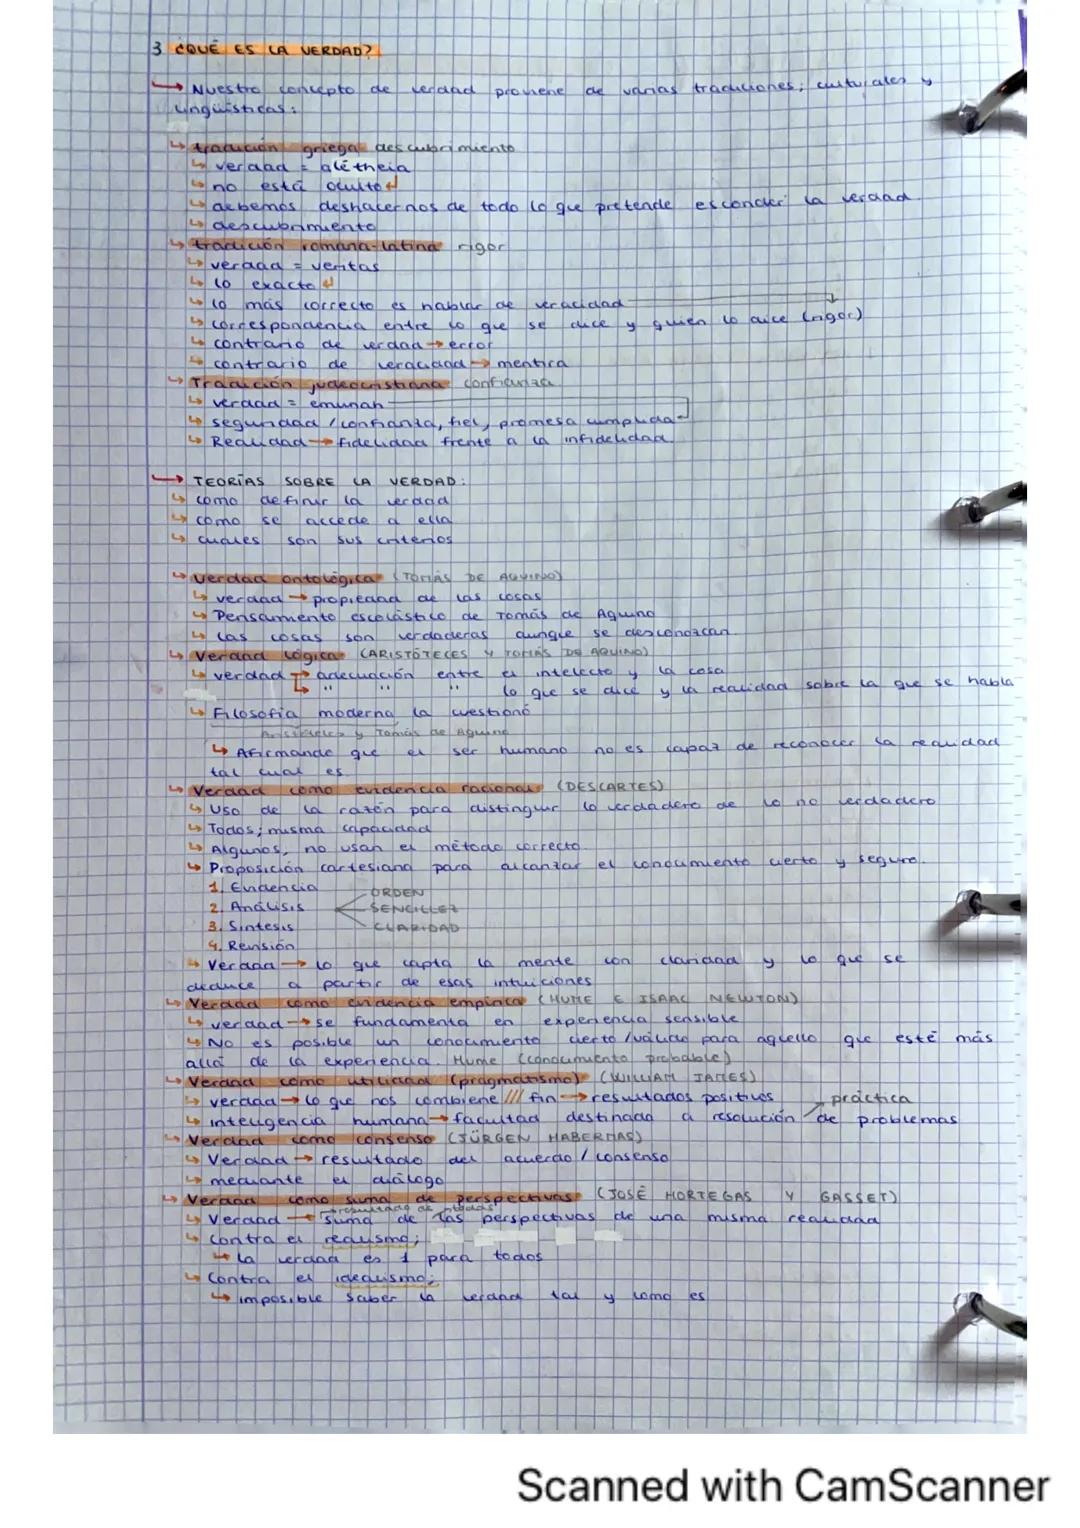 3 ¿QUÉ ES LA VERDAD?
→ Nuestro concepto de verdad proviene de varias tradiciones; culturales y
lingüísticas:
↳ tradición griega descubrimiento
↳ verdad = alétheia
↳ no está oculto
↳ debemos deshacernos de todo lo que pretende esconder la verdad.
↳ descubrimiento
↳ tradición romana-latina rigor
↳ verdad = veritas
↳ lo exacto
↳ lo más correcto es hablar de veracidad
↳ correspondencia entre lo que se dice y quien lo dice (rigor)
↳ contrario de verdad → error
↳ contrario de veracidad → mentira
↳ Tradición judeocristiana confianza
↳ verdad = emunah
↳ seguridad / confianza, fiel, promesa cumplida
↳ Realidad → fidelidad frente a la infidelidad.
→ TEORÍAS SOBRE LA VERDAD:
↳ como definir la verdad
↳ como se accede a ella
↳ cuales son sus criterios
↳ verdad ontológica (TOMÁS DE AQUINO)
↳ verdad → propiedad de las cosas
↳ Pensamiento escolástico de Tomás de Aquino
↳ las cosas son verdaderas aunque se desconozcan.
↳ Verdad lógica (ARISTÓTELES Y TOMÁS DE AQUINO)
↳ verdad → adecuación entre el intelecto y la cosa
↳ " " " lo que se dice y la realidad sobre la que se habla
↳ Filosofía moderna la cuestionó
Aristóteles y Tomás de Aquino
↳ Afirmando que el ser humano no es capaz de reconocer la realidad
tal cual es.
↳ Verdad como evidencia racional (DESCARTES)
↳ Uso de la razón para distinguir lo verdadero de lo no verdadero
↳ Todos; misma capacidad
↳ Algunos, no usan el método correcto
↳ Proposición cartesiana para alcanzar el conocimiento cierto y seguro.
1. Evidencia
ORDEN
2. Análisis
SENCILLEZ
3. Síntesis
CLARIDAD
4. Revisión
↳ Verdad → lo que capta la mente con claridad y lo que se
deduce a partir de esas intuiciones
↳ Verdad como evidencia empírica (HUME E ISAAC NEWTON)
↳ verdad → se fundamenta en experiencia sensible
↳ No es posible un conocimiento cierto/válido para aquello que esté más
allá de la experiencia. Hume (conocimiento probable)
↳ Verdad como utilidad (pragmatismo) (WILLIAM JAMES)
↳ verdad → lo que nos combiene /// fin → resultados positivos
práctica
↳ inteligencia humana → facultad destinada a resolución de problemas
↳ Verdad como consenso (JÜRGEN HABERMAS)
↳ Verdad → resultado del acuerdo / consenso
↳ mediante el diálogo
↳ Verdad como suma de perspectivas (JOSÉ HORTEGAS Y GASSET)
resultado de todas
↳ Verdad → suma de las perspectivas de una misma realidad
↳ Contra el realismo;
↳ la verdad es 1 para todos
↳ Contra el idealismo;
↳ imposible saber la verdad tal y como es
Scanned with CamScanner